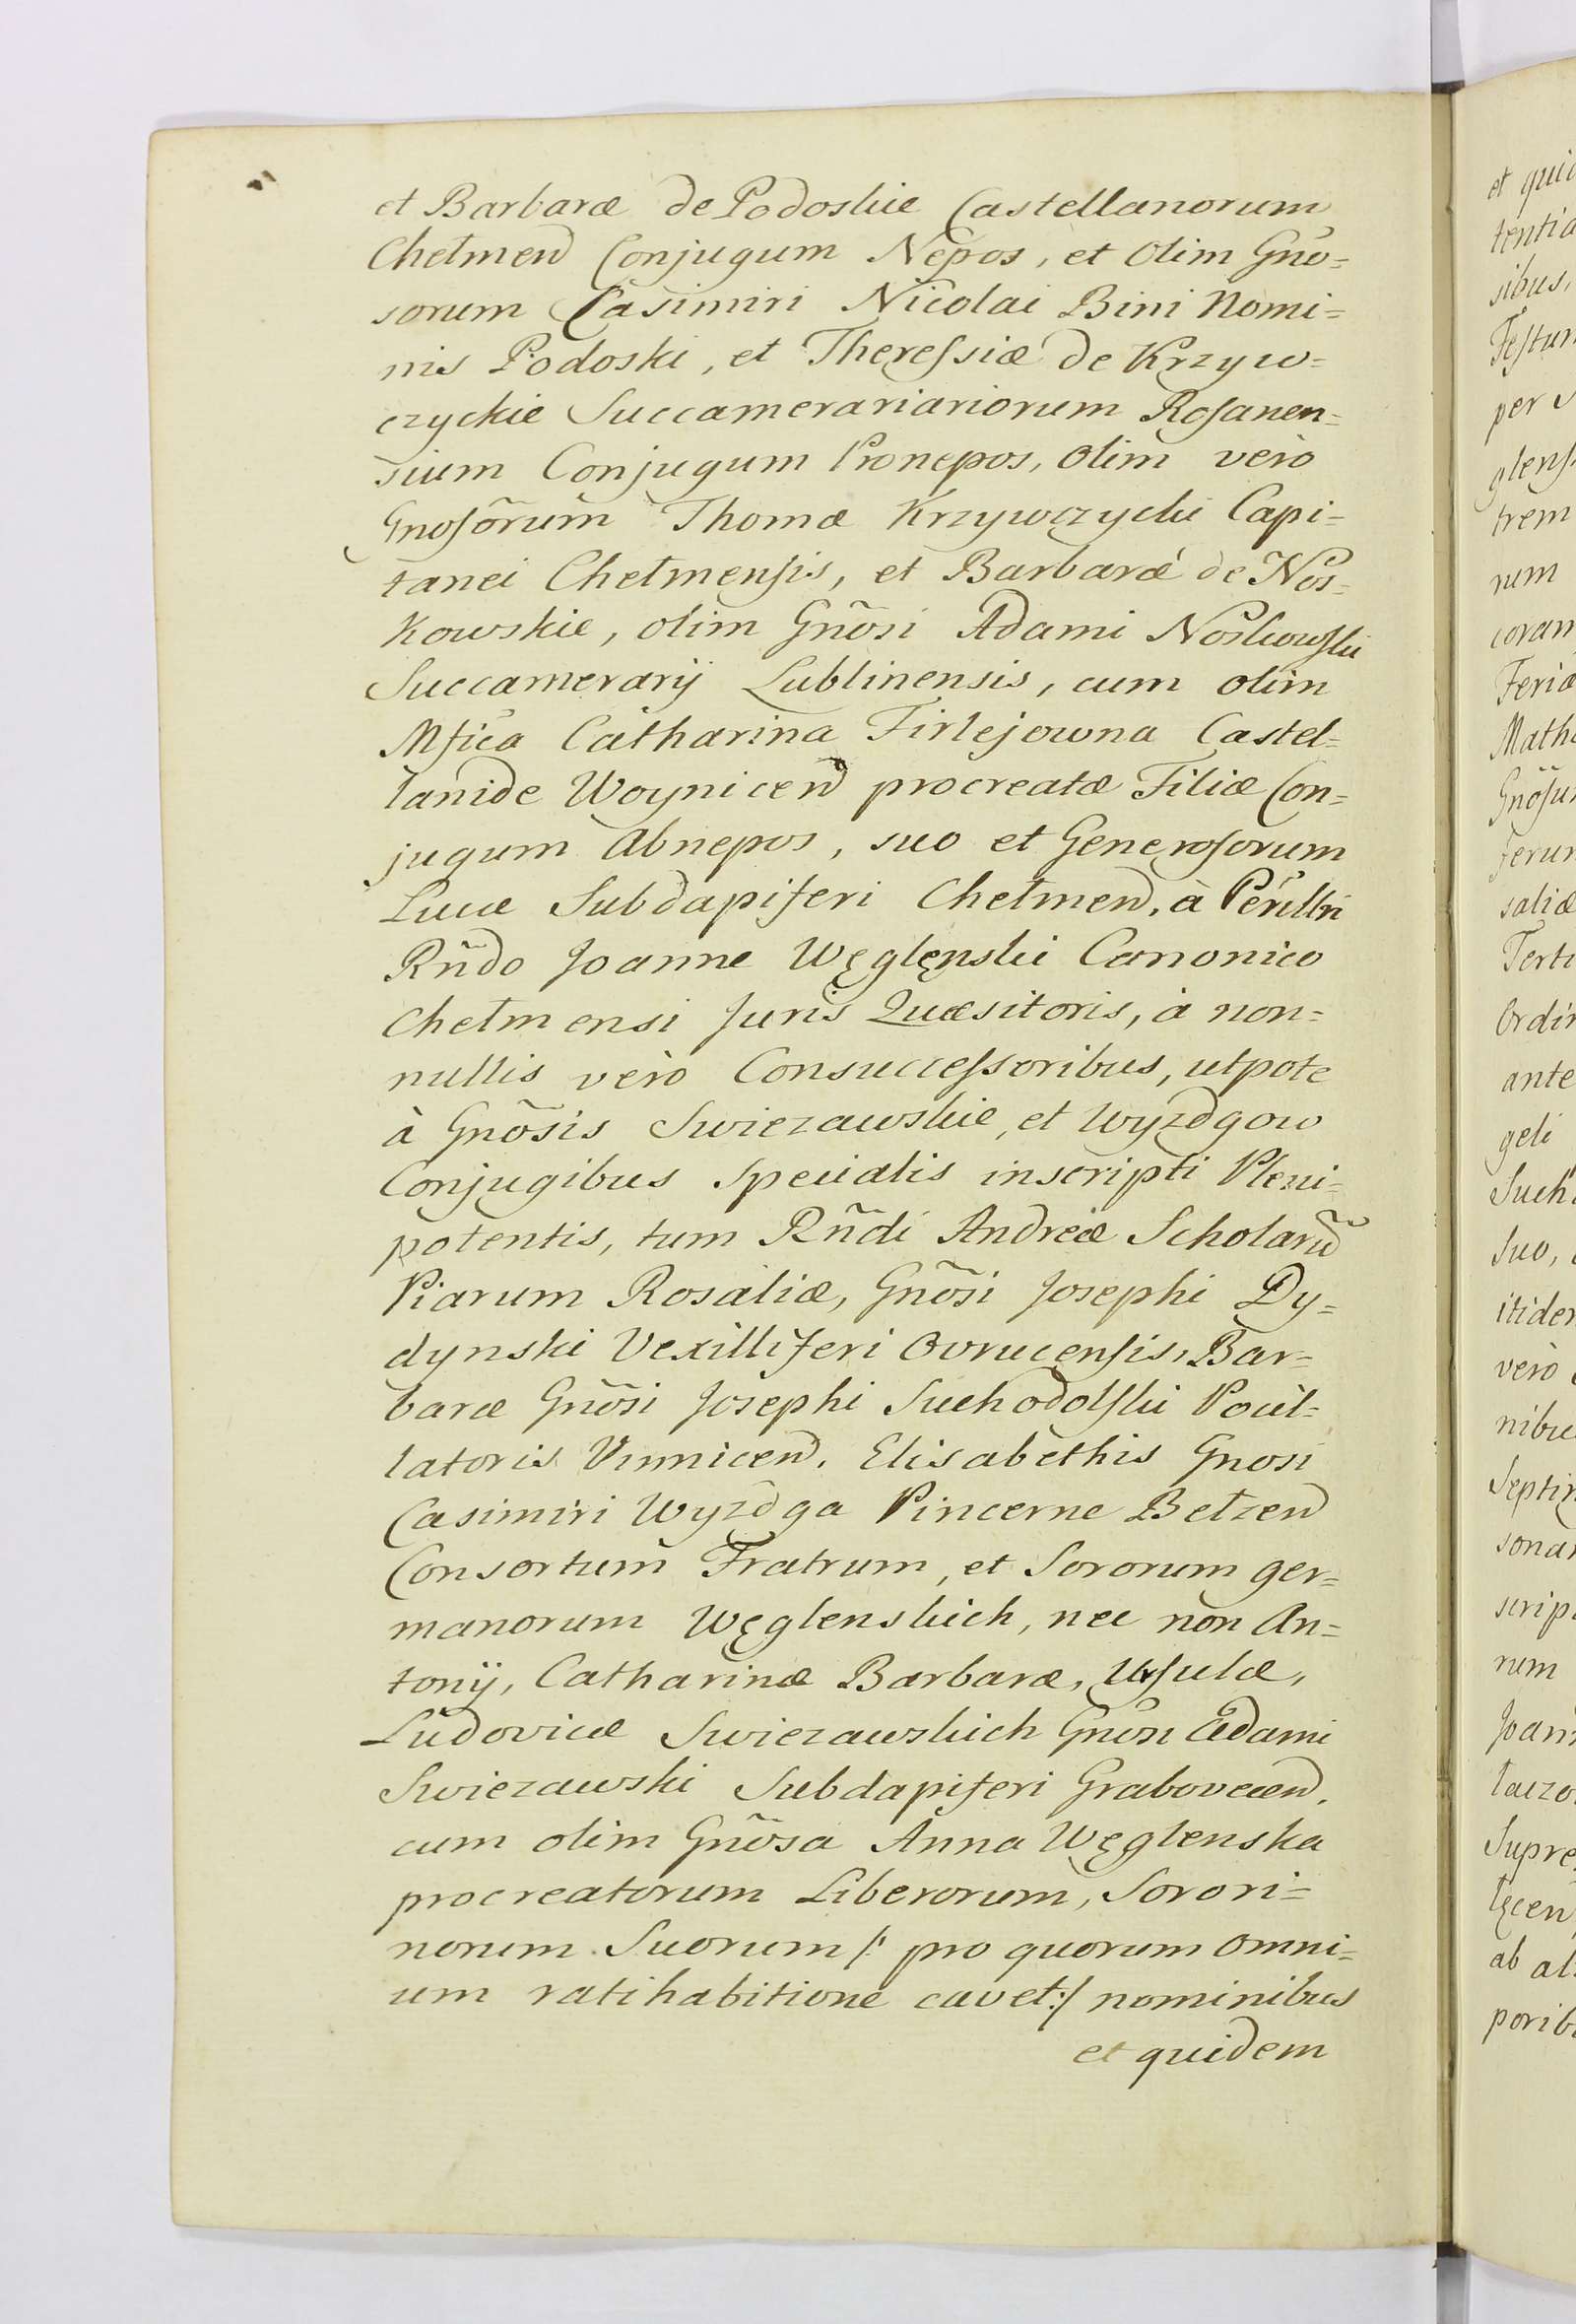 et Barbaræ de Podoskie Castellanorum
Chełmen Conjugum Nepos, et Olim Gno=
sorum Casimiri Nicolai Bini Nomi=
nis Podoski, et Theressiæ de Krzyw=
czyckie Succamerariariorum Rosanen=
sium Conjugum Pronepos, Olim verò
Gnosõrum Thomæ Krzywczycki Capi=
tanei Chełmensis, et Barbaræ de Nos=
kowskie, olim Gnõsi Adami Noskowski
Succamerarij Lublinensis, cum olim
Mfica Catharina Firlejowna Castel=
lanide Woynicen procreatæ Filiæ Con=
jugum Abnepos, suo et Generosorum
Lucæ Subdapiferi Chełmen, à Perillri
Rñdo Joanne Węglęnski Canonico
Chełmensi Juris Quæsitoris, à non=
nullis verò Consuccessoribus, utpote
à Gnõsis Swiezawskie, et Wyzdgow
Conjugibus specialis inscripti Pleni=
potentis, tum Rñdi Andreæ Scholarũ
Piarum Rosaliæ, Gnõsi Josephi Dy=
dynski Vexilliferi Ovrucensis, Bar=
baræ Gnõsi Josephi Suchodolski Pocil=
latoris Vinnicen. Elisabethis Gnosi
Casimiri Wyzdga Pincerne Bełzen
Consortum Fratrum, et Sororum ger=
manorum Węglenskich, nec non An=
tonij, Catharinæ Barbaræ, Ursulæ,
Ludovicæ Swiezawskich Gnõsi Adami
Swiezawski Subdapiferi Grabovecen.
cum olim Gnõsa Anna Węglenska
procreatorum Liberorum, Sorori=
norum Suorum /: pro quorum omni=
um ratihabitione cavet :/ nominibus
et quidem
et
sibus,
per
trem
rum
ante
geli
Suo,
verò
rum
ab